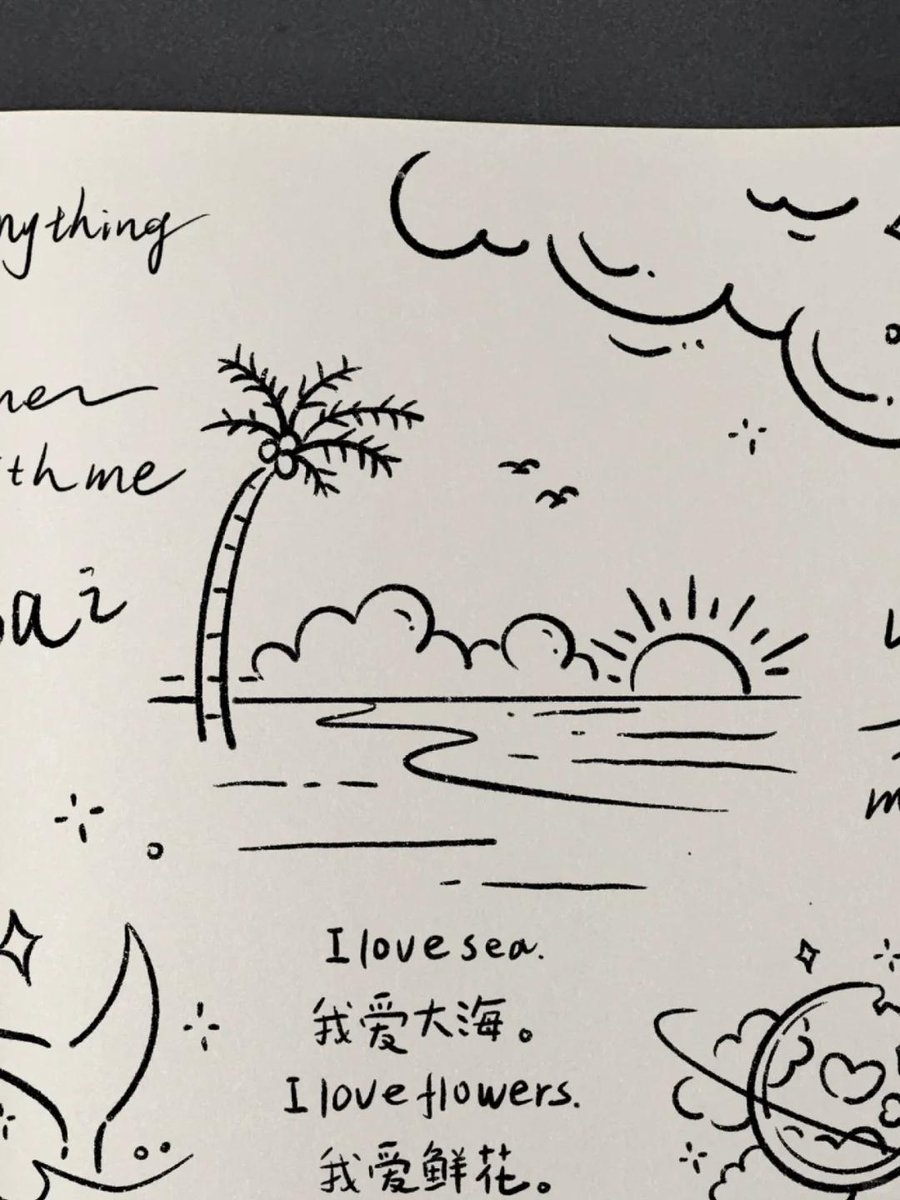 nything
ith me
I love sea.
我爱大海。
I love flowers.
我爱鲜花。